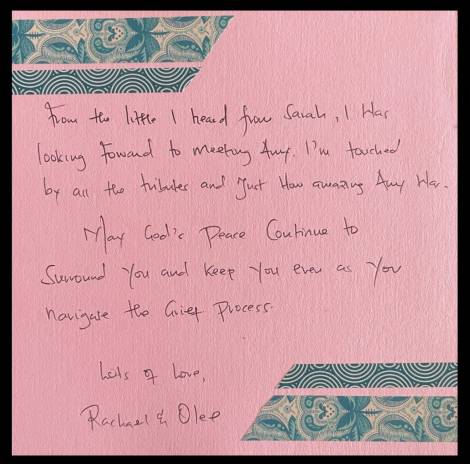 From the little I heard from Sarah, I was
looking Forward to meeting Amy. I'm touched
by all the tributes and Just How amazing Amy was.
May God's Peace Continue to
Surround You and keep You even as You
navigate the Grief Process.
Lots of Love,
Rachael &